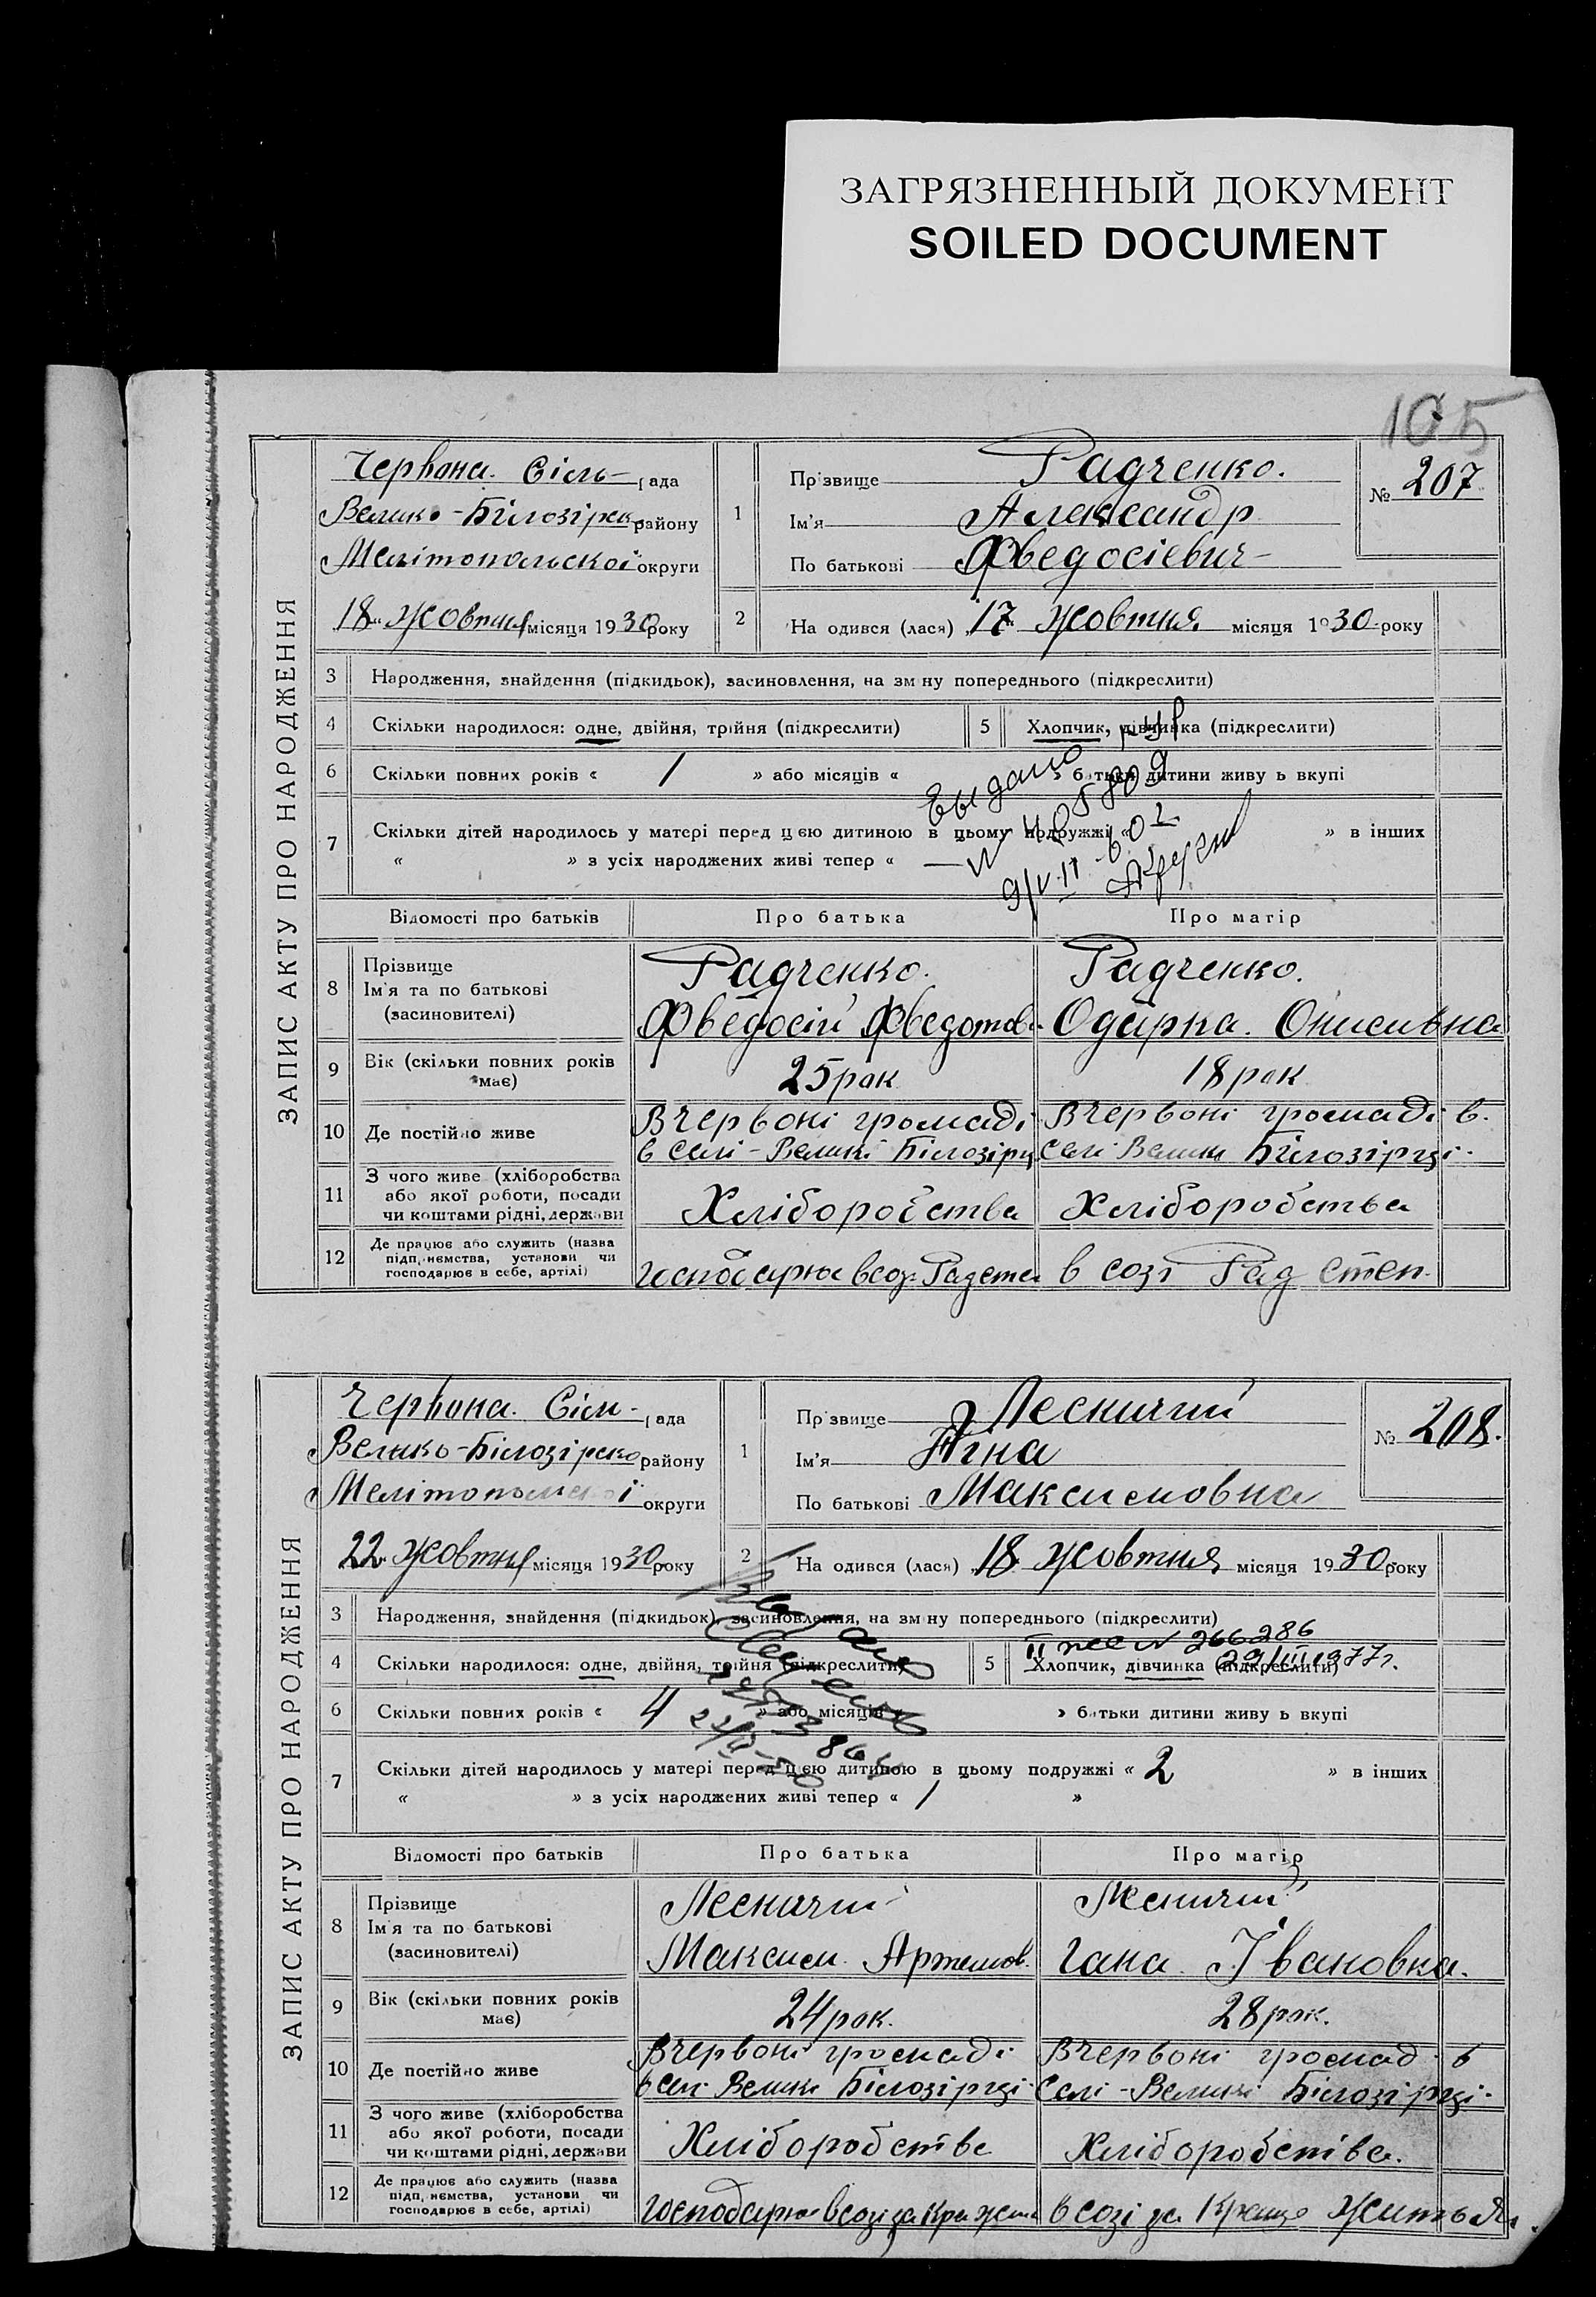 ЗАГРЯЗНЕННЫЙ ДОКУМЕНТ
SOILED DOCUMENT
105
ЗАПИС АКТУ ПРО НАРОДЖЕННЯ
Червона. Сіль- рада
Велико-Білозірск району
Мелітопольскої округи
18 жовтня місяця 1930 року
1
Прізвище Радченко.
Ім'я Александр
По батькові Фведосіевич
№ 207
2 На одився (лася) „17 жовтня місяця 1930 року
3 Народження, знайдення (підкидьок), засиновлення, на зм ну попереднього (підкреслити)
4 Скільки народилося: одне, двійня, трійня (підкреслити) 5 Хлопчик, дівчинка (підкреслити)
6 Скільки повних років « / » або місяців « » батьки дитини живу ь вкупі
7 Скільки дітей народилось у матері перед цією дитиною в цьому подружжі « » в інших
« » з усіх народжених живі тепер « —
Выдано
Відомості про батьків Про батька Про матір
8 Прізвище
Ім'я та по батькові
(засиновителі)
Радченко.
Фведосій Фведотов.
Радченко.
Одарка. Онисивна
9 Вік (скільки повних років
має)
25 рок
18 рок
10 Де постійно живе
В червоні громаді
в селі - Великі Білозірц
В червоні громаді в.
селі Велики Білозірці.
11 З чого живе (хліборобства
або якої роботи, посади
чи коштами рідні, держави
Хліборобства
Хліборобства
12 Де працює або служить (назва
підп, нємства, установи чи
господарює в себе, артілі)
Господарює в соз. Радсте
в созі Рад степ.
ЗАПИС АКТУ ПРО НАРОДЖЕННЯ
Червона. Сіль- рада
Велико-Білозірско району
Мелітопольскої округи
22 жовтня місяця 1930 року
1
Прізвище Лесничий
Ім'я Ягна
По батькові Максимовна
№ 208.
2 На одився (лася) „18 жовтня місяця 1930 року
3 Народження, знайдення (підкидьок), засиновлення, на зм ну попереднього (підкреслити)
II № 266286
29/III 1977г.
4 Скільки народилося: одне, двійня, трійня (підкреслити) 5 Хлопчик, дівчинка (підкреслити)
6 Скільки повних років « 4 » або місяців « » батьки дитини живу ь вкупі
7 Скільки дітей народилось у матері перед цією дитиною в цьому подружжі « 2 » в інших
« » з усіх народжених живі тепер « / »
Відомості про батьків Про батька Про матір
8 Прізвище
Ім'я та по батькові
(засиновителі)
Лесничий
Максим. Артемов.
Лесничий
Гана. Івановна.
9 Вік (скільки повних років
має)
24 рок.
28 рок.
10 Де постійно живе
В червоні громаді
в селі Велики Білозірці
В червоні громаді в
селі - Великі Білозірці.
11 З чого живе (хліборобства
або якої роботи, посади
чи коштами рідні, держави
Хліборобства
Хліборобства.
12 Де працює або служить (назва
підп, нємства, установи чи
господарює в себе, артілі)
Господарює в созі за кра жит
в созі за краще життья.